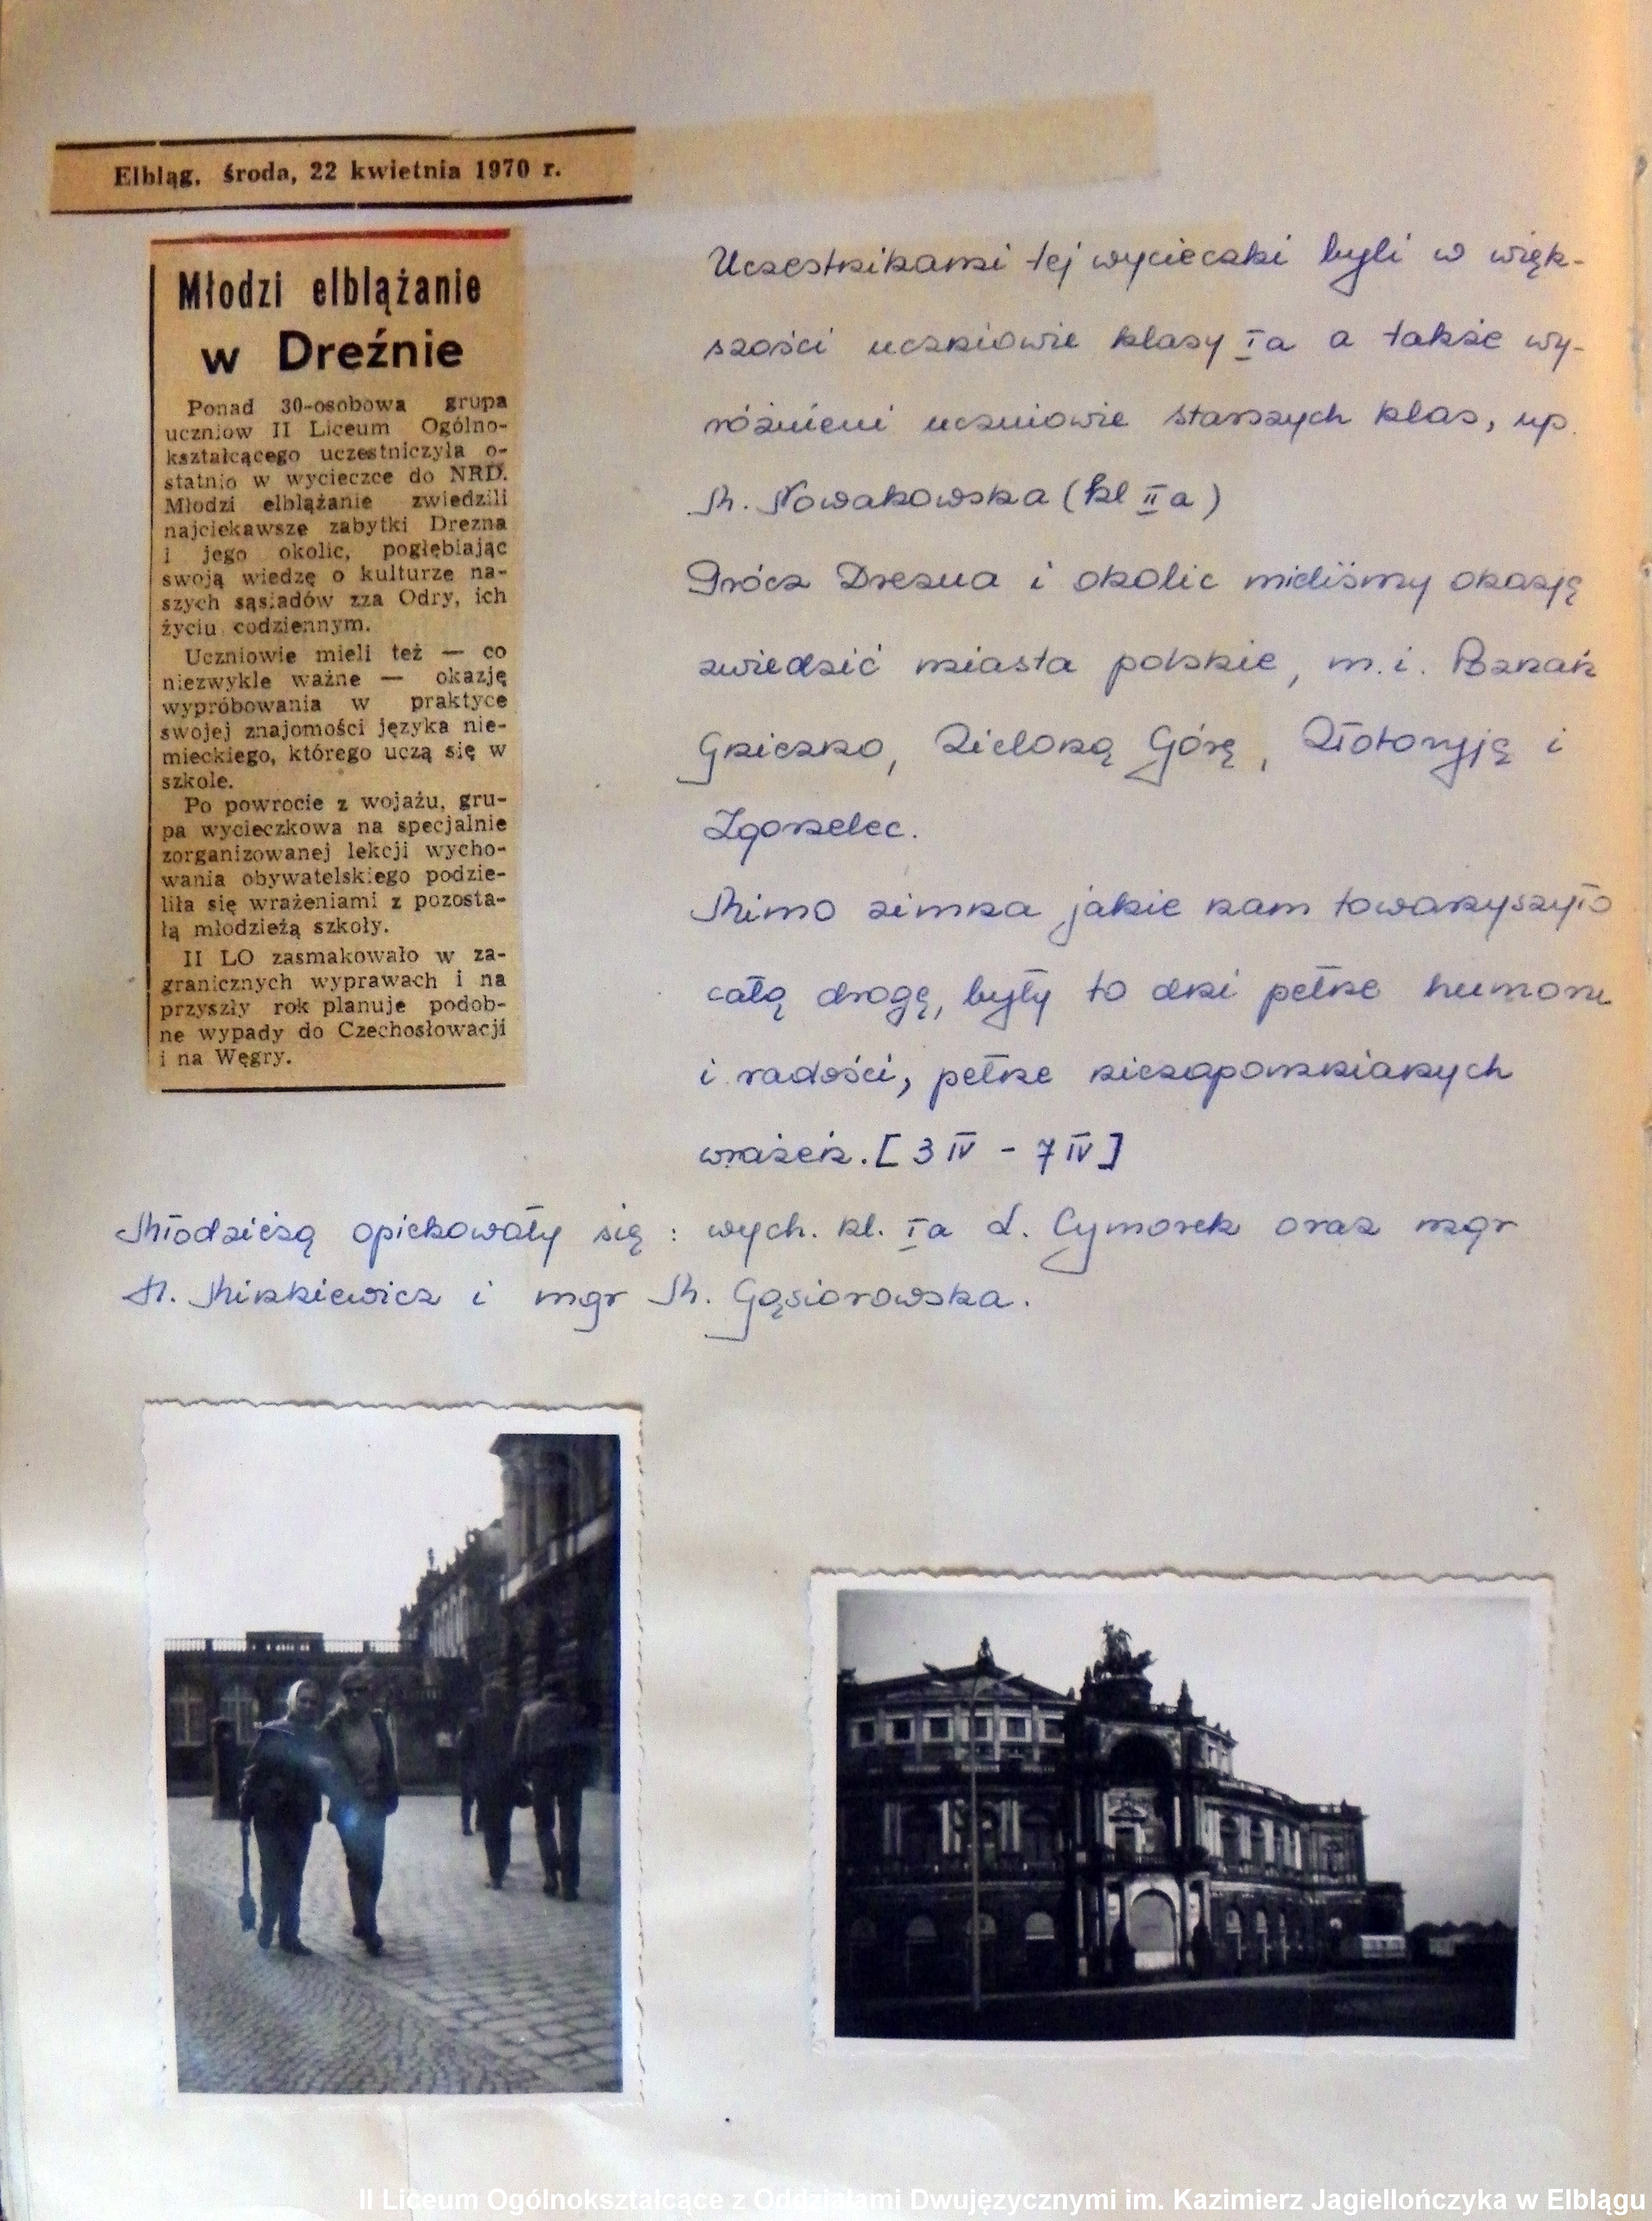 Elbląg, środa, 22 kwietnia 1970 r.
Młodzi elblążanie
w Dreźnie
Ponad 30-osobowa grupa
uczniow II Liceum Ogólno-
kształcącego uczestniczyla o-
statnio w wycieczce do NRD.
Młodzi elblążanie zwiedzili
najciekawsze zabytki Drezna
i jego okolic, pogłębiając
swoją wiedzę o kulturze na-
szych sąsiadów zza Odry, ich
życiu codziennym.
Uczniowie mieli też — co
niezwykle ważne — okazję
wypróbowania w praktyce
swojej znajomości języka nie-
mieckiego, którego uczą się w
szkole.
Po powrocie z wojażu, gru-
pa wycieczkowa na specjalnie
zorganizowanej lekcji wycho-
wania obywatelskiego podzie-
liła się wrażeniami z pozosta-
łą młodzieżą szkoły.
II LO zasmakowało w za-
granicznych wyprawach i na
przyszły rok planuje podob-
ne wypady do Czechosłowacji
i na Węgry.
Uczestnikami tej wycieczki byli w więk-
szości uczniowie klasy Ia a także wy-
różnieni uczniowie starszych klas, np.
M. Nowakowska (kl IIa)
Prócz Drezna i okolic mieliśmy okazję
zwiedzić miasta polskie, m.i. Poznań
Gniezno, Zieloną Górę, Złotoryję i
Zgorzelec.
Mimo zimna jakie nam towarzyszyło
całą drogę, były to dni pełne humoru
i radości, pełne niezapomnianych
wrażeń. [3 IV - 7 IV]
Młodzieżą opiekowały się: wych. kl. Ia L. Cymorek oraz mgr
H. Minkiewicz i mgr M. Gąsiorowska.
II Liceum Ogólnokształcące z Oddziałami Dwujęzycznymi im. Kazimierz Jagiellończyka w Elblągu